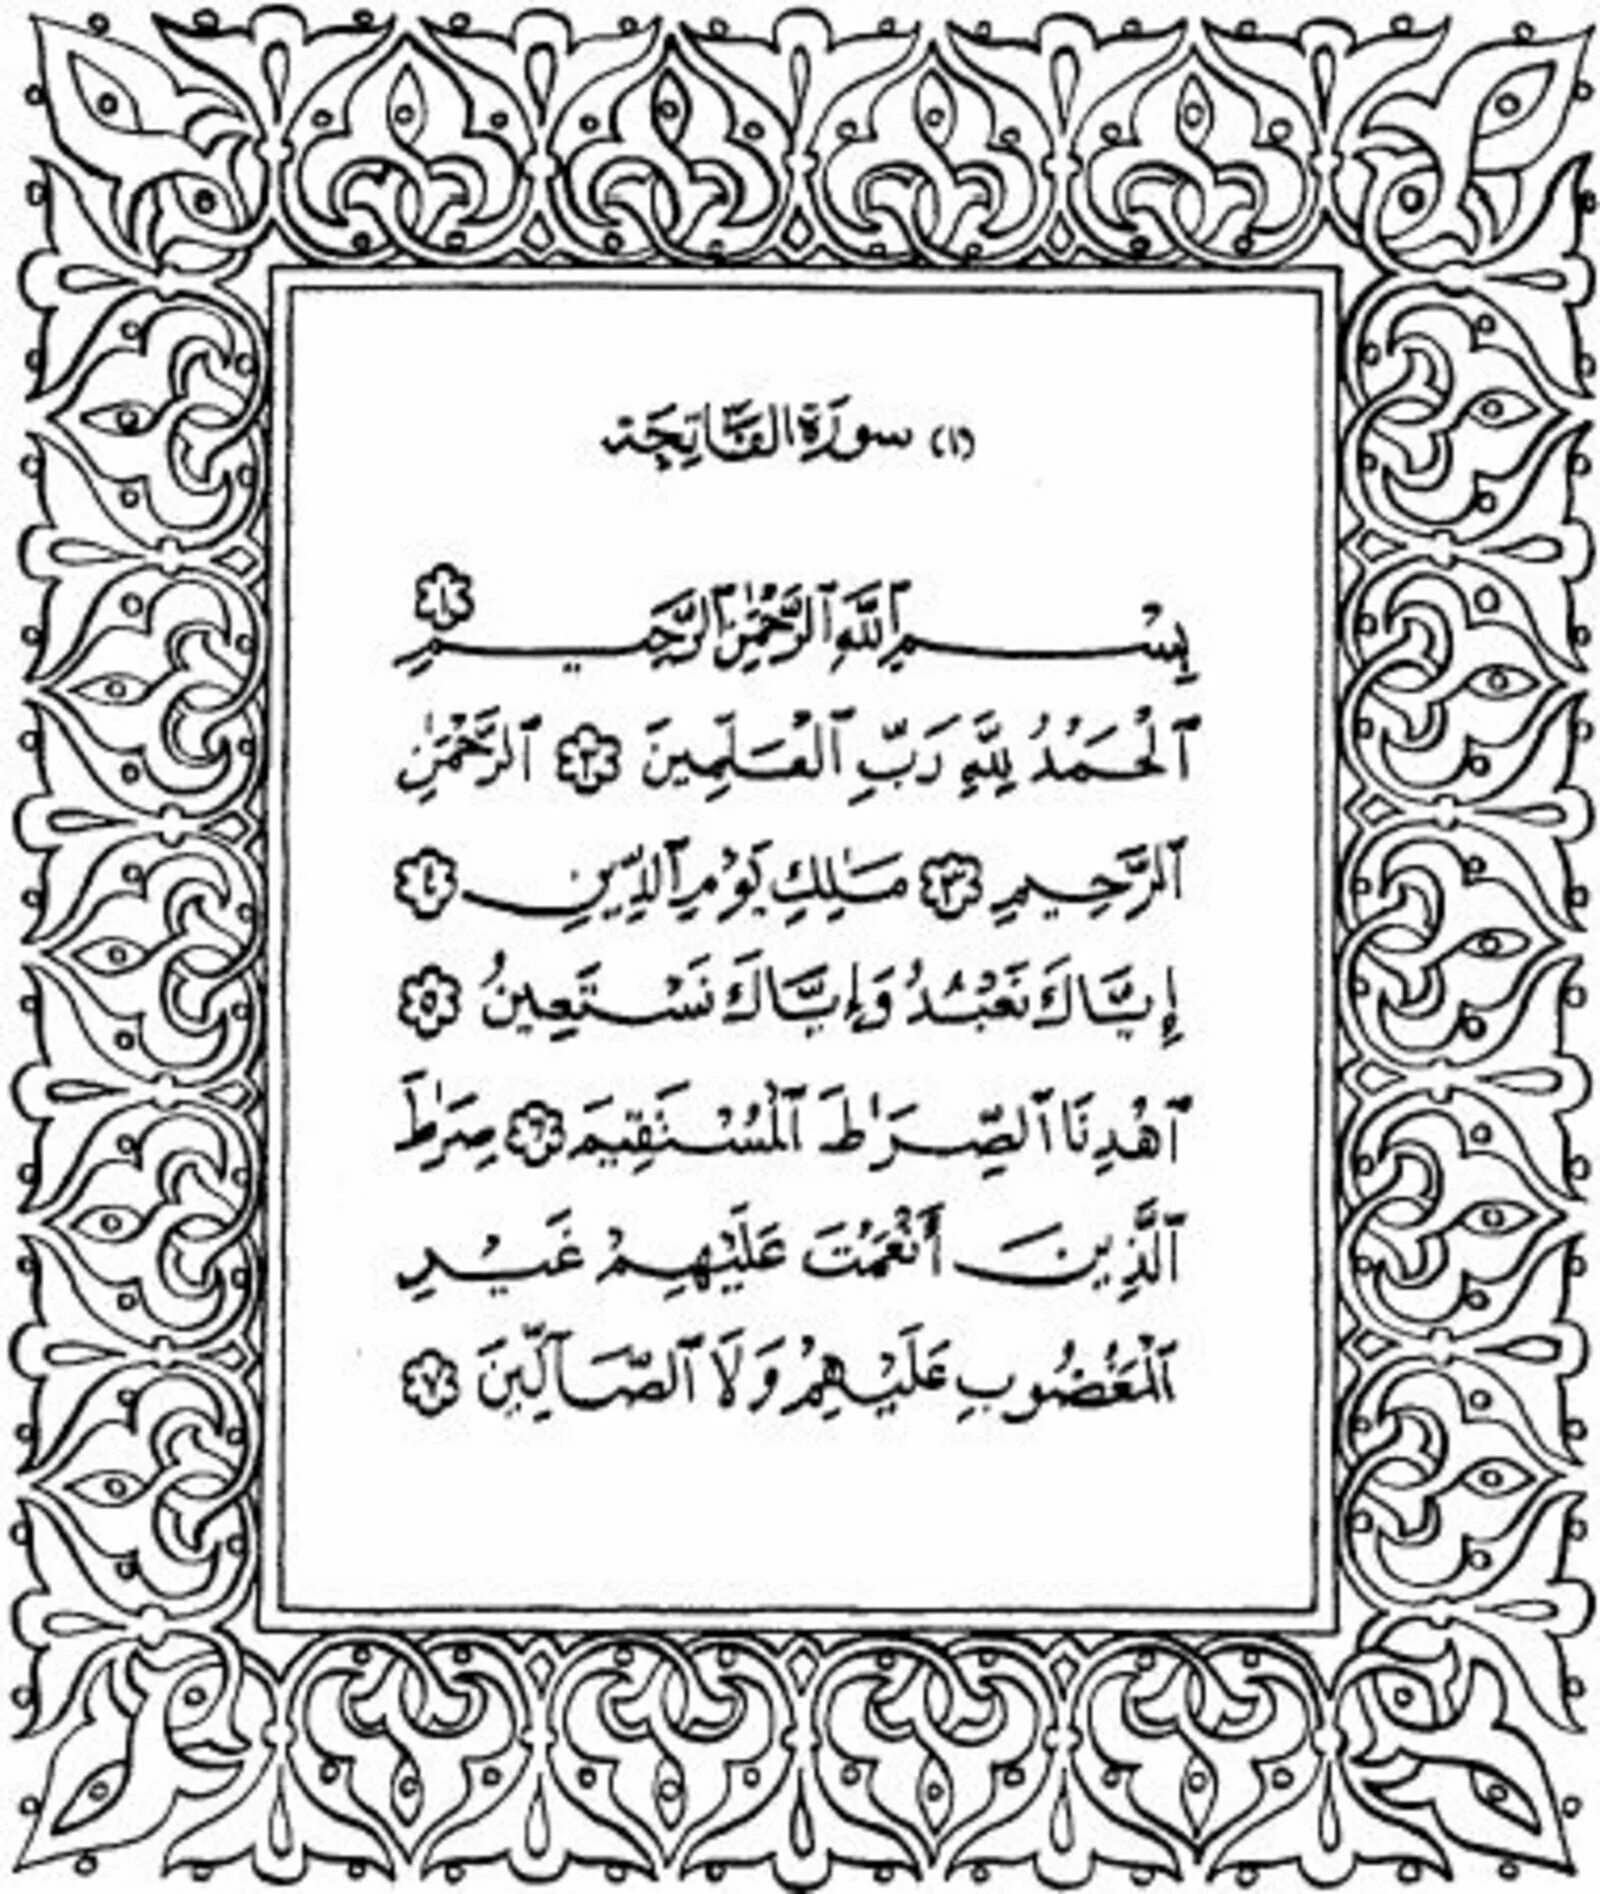 (١) سورة الفاتحة
بِسْمِ ٱللَّهِ ٱلرَّحْمَٰنِ ٱلرَّحِيمِ ١
ٱلْحَمْدُ لِلَّهِ رَبِّ ٱلْعَٰلَمِينَ ٢ ٱلرَّحْمَٰنِ
ٱلرَّحِيمِ ٣ مَٰلِكِ يَوْمِ ٱلدِّينِ ٤
إِيَّاكَ نَعْبُدُ وَإِيَّاكَ نَسْتَعِينُ ٥
ٱهْدِنَا ٱلصِّرَٰطَ ٱلْمُسْتَقِيمَ ٦ صِرَٰطَ
ٱلَّذِينَ أَنْعَمْتَ عَلَيْهِمْ غَيْرِ
ٱلْمَغْضُوبِ عَلَيْهِمْ وَلَا ٱلضَّآلِّينَ ٧